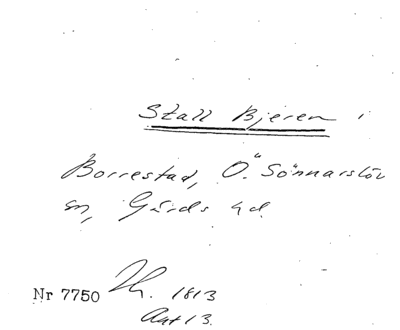 Stall Bjeren i
Borrestad, Ö. Sönnarslöv
sn, Gärds hd.
Nr 7750 Th. 1813
Aat 13.